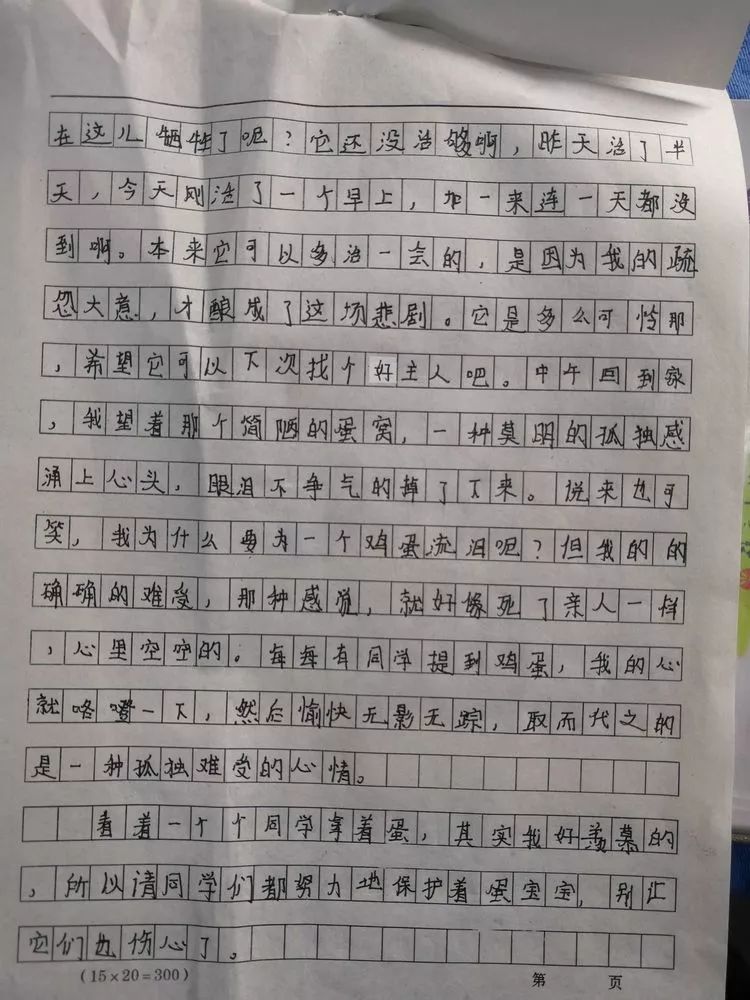 在这儿牺牲了呢？它还没活够啊，昨天活了半
天，今天刚活了一个早上，加一来连一天都没
到啊。本来它可以多活一会的，是因为我的疏
忽大意，才酿成了这场悲剧。它是多么可怜那
，希望它可以下次找个好主人吧。中午回到家
，我望着那个简陋的蛋窝，一种莫明的孤独感
涌上心头，眼泪不争气的掉了下来。说来也可
笑，我为什么要为一个鸡蛋流泪呢？但我的的
确确的难受，那种感觉，就好像死了亲人一样
，心里空空的。每每有同学提到鸡蛋，我的心
就咯噔一下，然后愉快无影无踪，取而代之的
是一种孤独难受的心情。
看着一个个同学拿着蛋，其实我好羡慕的
，所以请同学们都努力地保护着蛋宝宝，别汇
它们也伤心了。
(15×20=300) 第 页